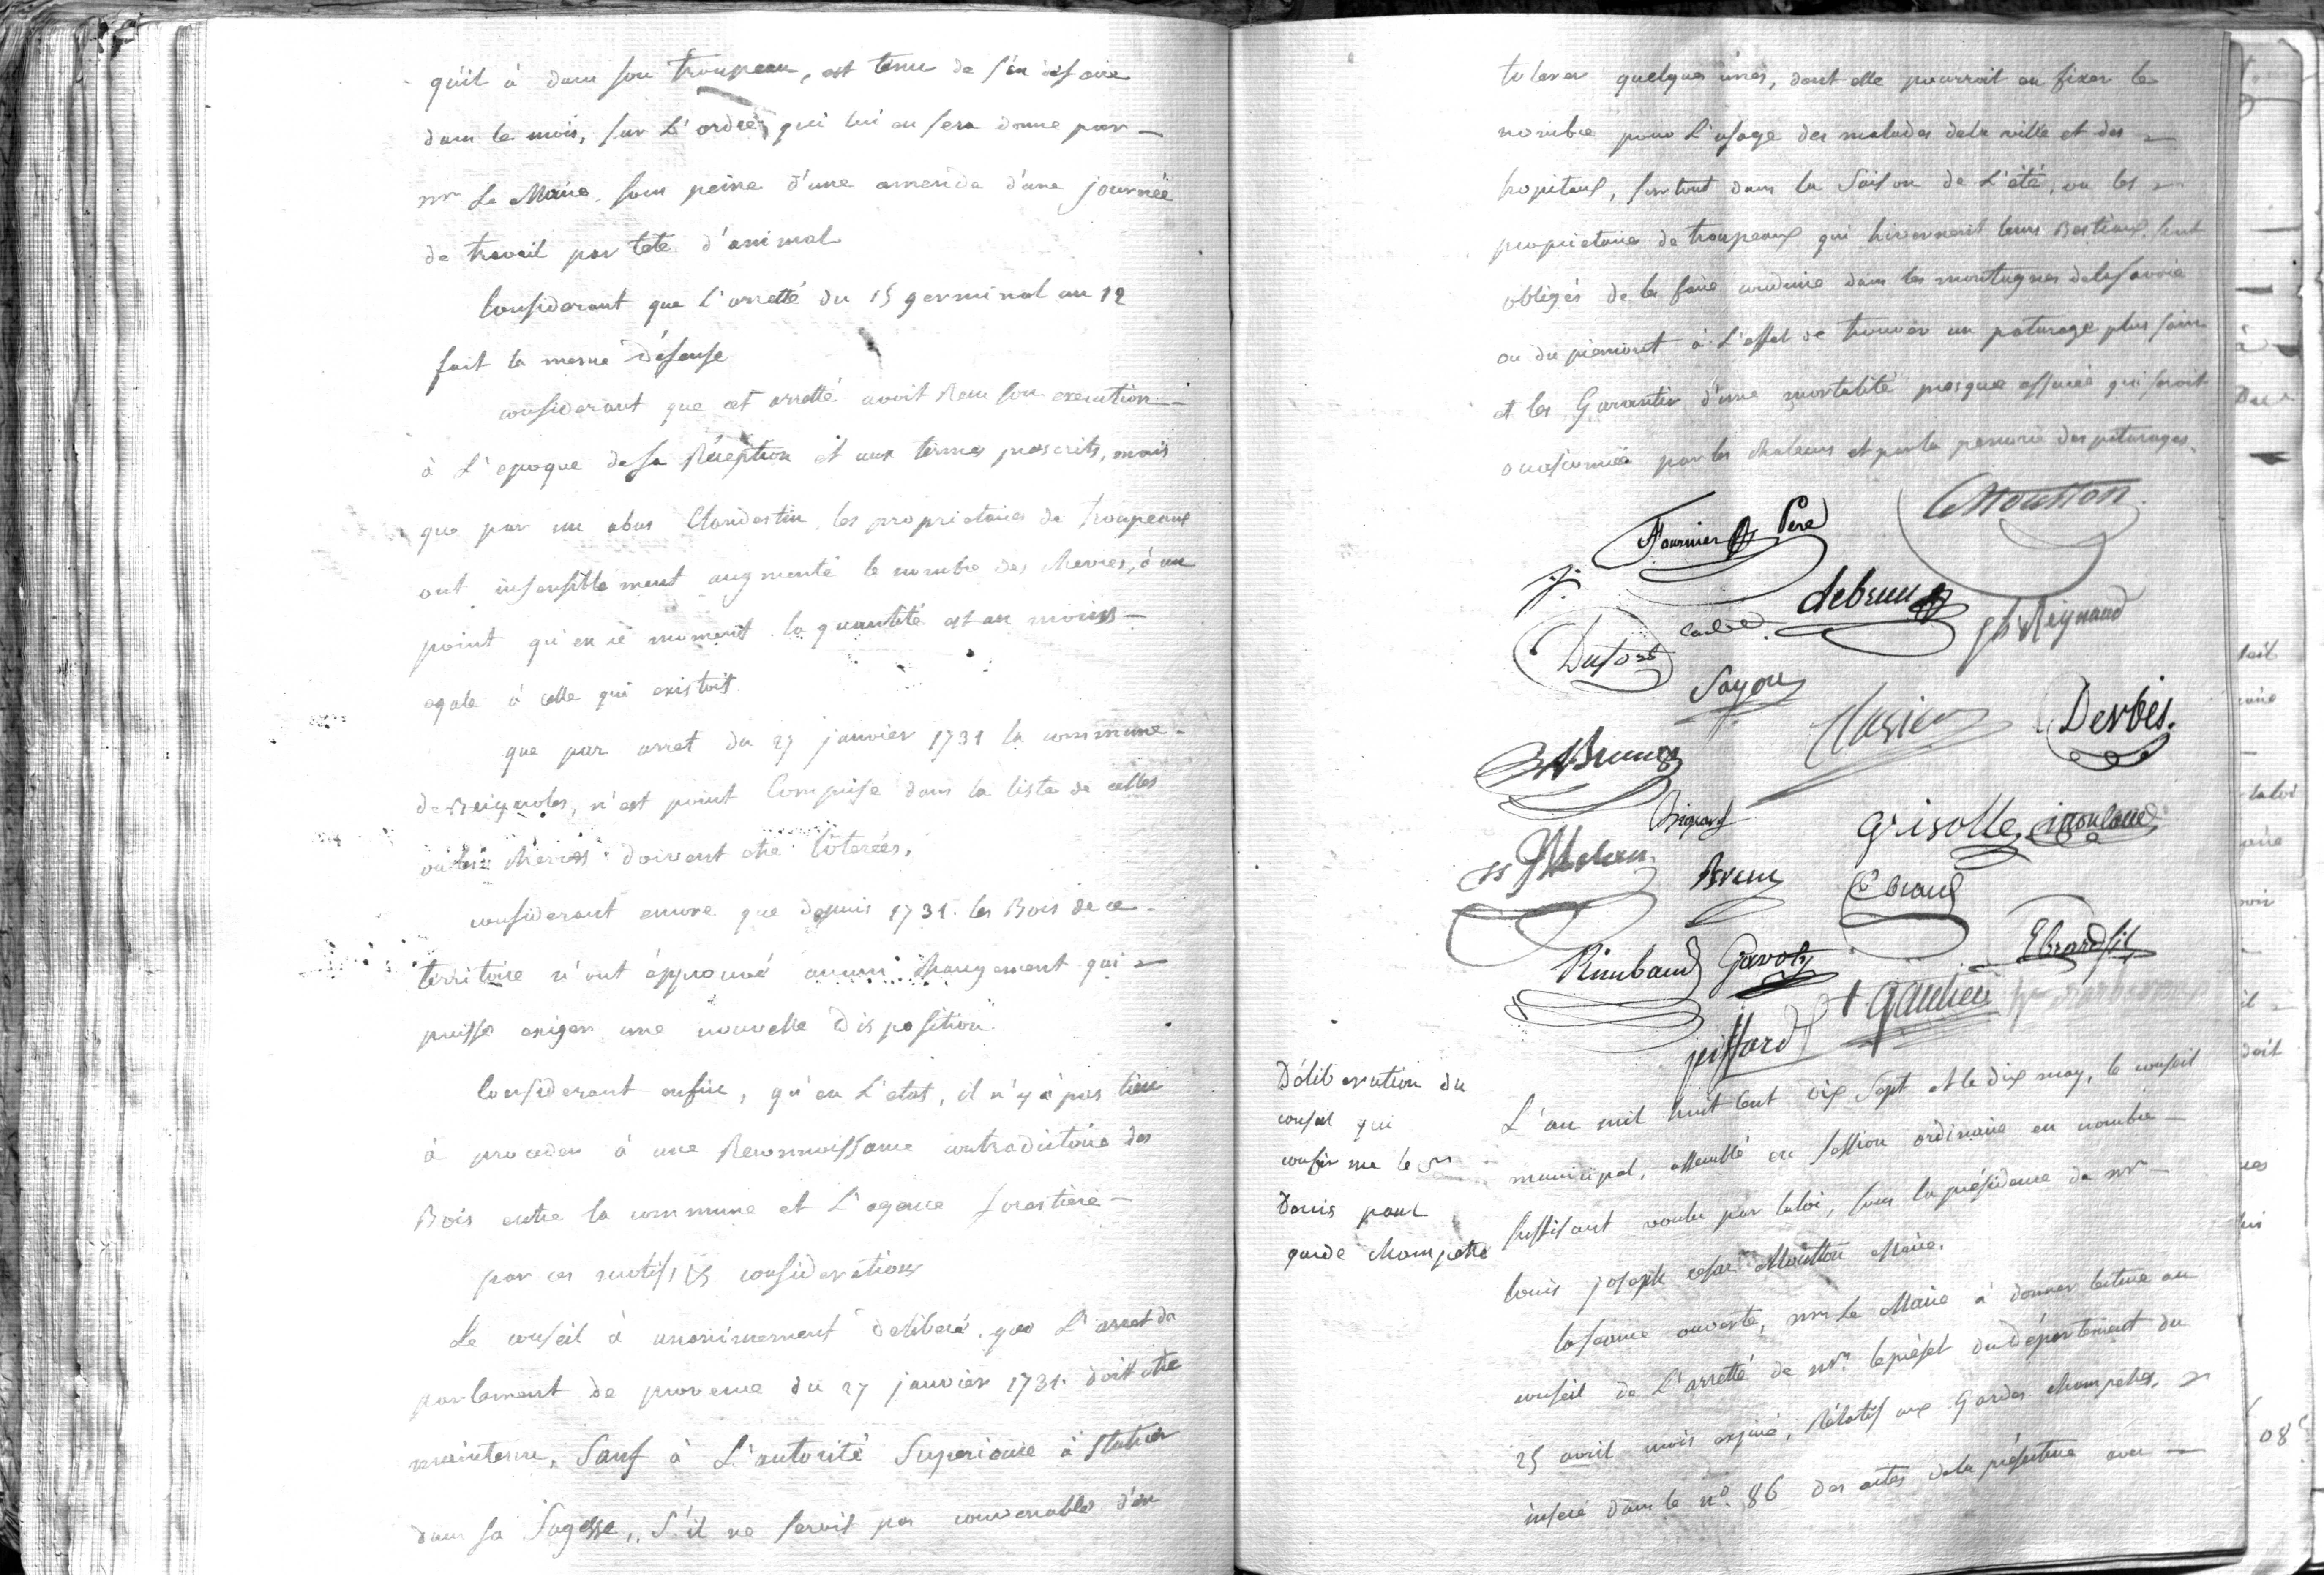 qu'il à dans son troupeau, est tenu de s'en defaire
dans le mois, sur L'ordre, qui lui en sera donne par
mr Le Maire. sous peine d'une amende d'une journée
de travail par tete d'animal
Considerant que L'arretté du 15 germinal an 12
fait la meme défense
considerant que cet arretté avoit son execution
à L'epoque desa Réception et aux termes prescrits, mais
que par un abus Clandestin, les proprietaires de troupeaux
ont insensiblement augmenté le nombre des chevres, à un
point qu'en ce moment la quantité est au moins
egale à celle qui existoit.
que par arret du 27 janvier 1731 la commune
de Brignoles, n'est point Comprise dans la liste de celles
où les chevres doivent etre tolerées,
considerant encore que depuis 1731. les Bois de ce
territoire n'ont épprouvé aucun changement qui
puisse exiger une nouvelle disposition.
Considerant enfin, qu'en L'etat, il n'y à pas lieu
à proceder à une Reconnoissance contradictoire des
Bois entre la commune et L'agence forestiere
par ces motifs & considerations
Le conseil à unanimement deliberé, que L'arret du
parlement de provence du 27 janvier 1731. doit etre
maintenu, Sauf à L'autorité Superieure à statuer
dans sa Sagesse, S'il ne seroit pas convenable d'en
tolerer quelques unes, dont elle pourroit en fixer le
nombre pour L'usage des malades dela ville et des
hopitaux, surtout dans la Saison de L'été, ou les
proprietaires de troupeaux qui hivernent leurs Bestiaux, sont
obligés de les faire conduire dans les montagnes dela savoie
ou du piemont à L'effet de trouver un paturage plus sain
et les Garantir d'une mortalité presque assurée qui seroit
occasionnée par les chaleurs et par la penurie des paturages.
Moutton
Fournier Pere
debrun
Reynaud
Dufort
Sayou
Derbès.
Brunet
Grisolle
Brun
Ebrard
Rimbaud Gavoty
Ebrard fils
jaiffard
Gautier
Délibération du
conseil qui
confirme le Sr
Denis pour
garde champetre
L'an mil huit Cent dix Sept et le dix may, le conseil
municipal, assemblé en session ordinaire en nombre
suffisant voulu par laloi, sous la présidence de mr
Louis joseph cesar Moutton Maire.
la séance ouverte, mr Le Maire à donner lecture au
conseil de L'arretté de mr. le préfet du Département du
25 avril mois expiré, Rélatif aux Gardes champetres,
inseré dans le n°. 86 des actes dela préfecture
08